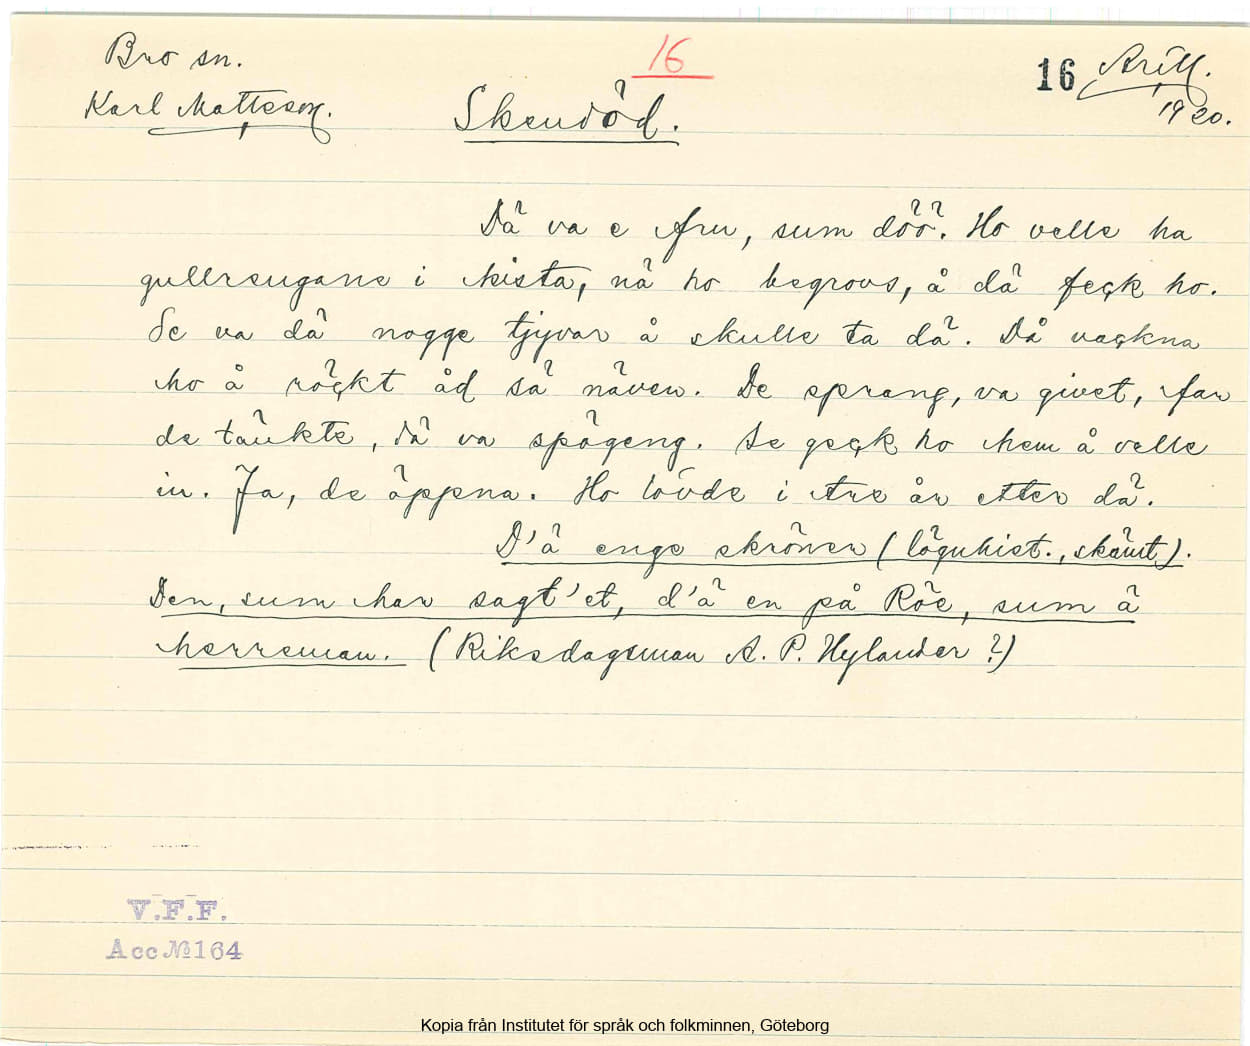 Bro sn.
16
16 April.
Karl Mattsson.
Skendöd.
1920.
Dä va e fru, sum döö. Ho velle ha
gullrengane i kista, nä ho begrovs, å dä feçk ho.
Se va dä nogge tjyvar å skulle ta dä. Då vaçkna
ho å röçkt åd sä näven. De sprang, va givet, far
de täukte, dä va spögeng. Se geçk ho hem å velle
in. Ja, de äppna. Ho lövde i tre år etter dä.
D'ä enge skröner (lögnhist., skämt).
Den, sum har sagt'et, d'ä en på Röe, sum ä
herreman. (Riksdagsman A. P. Hylander?)
V.F.F.
Acc №164
Kopia från Institutet för språk och folkminnen, Göteborg